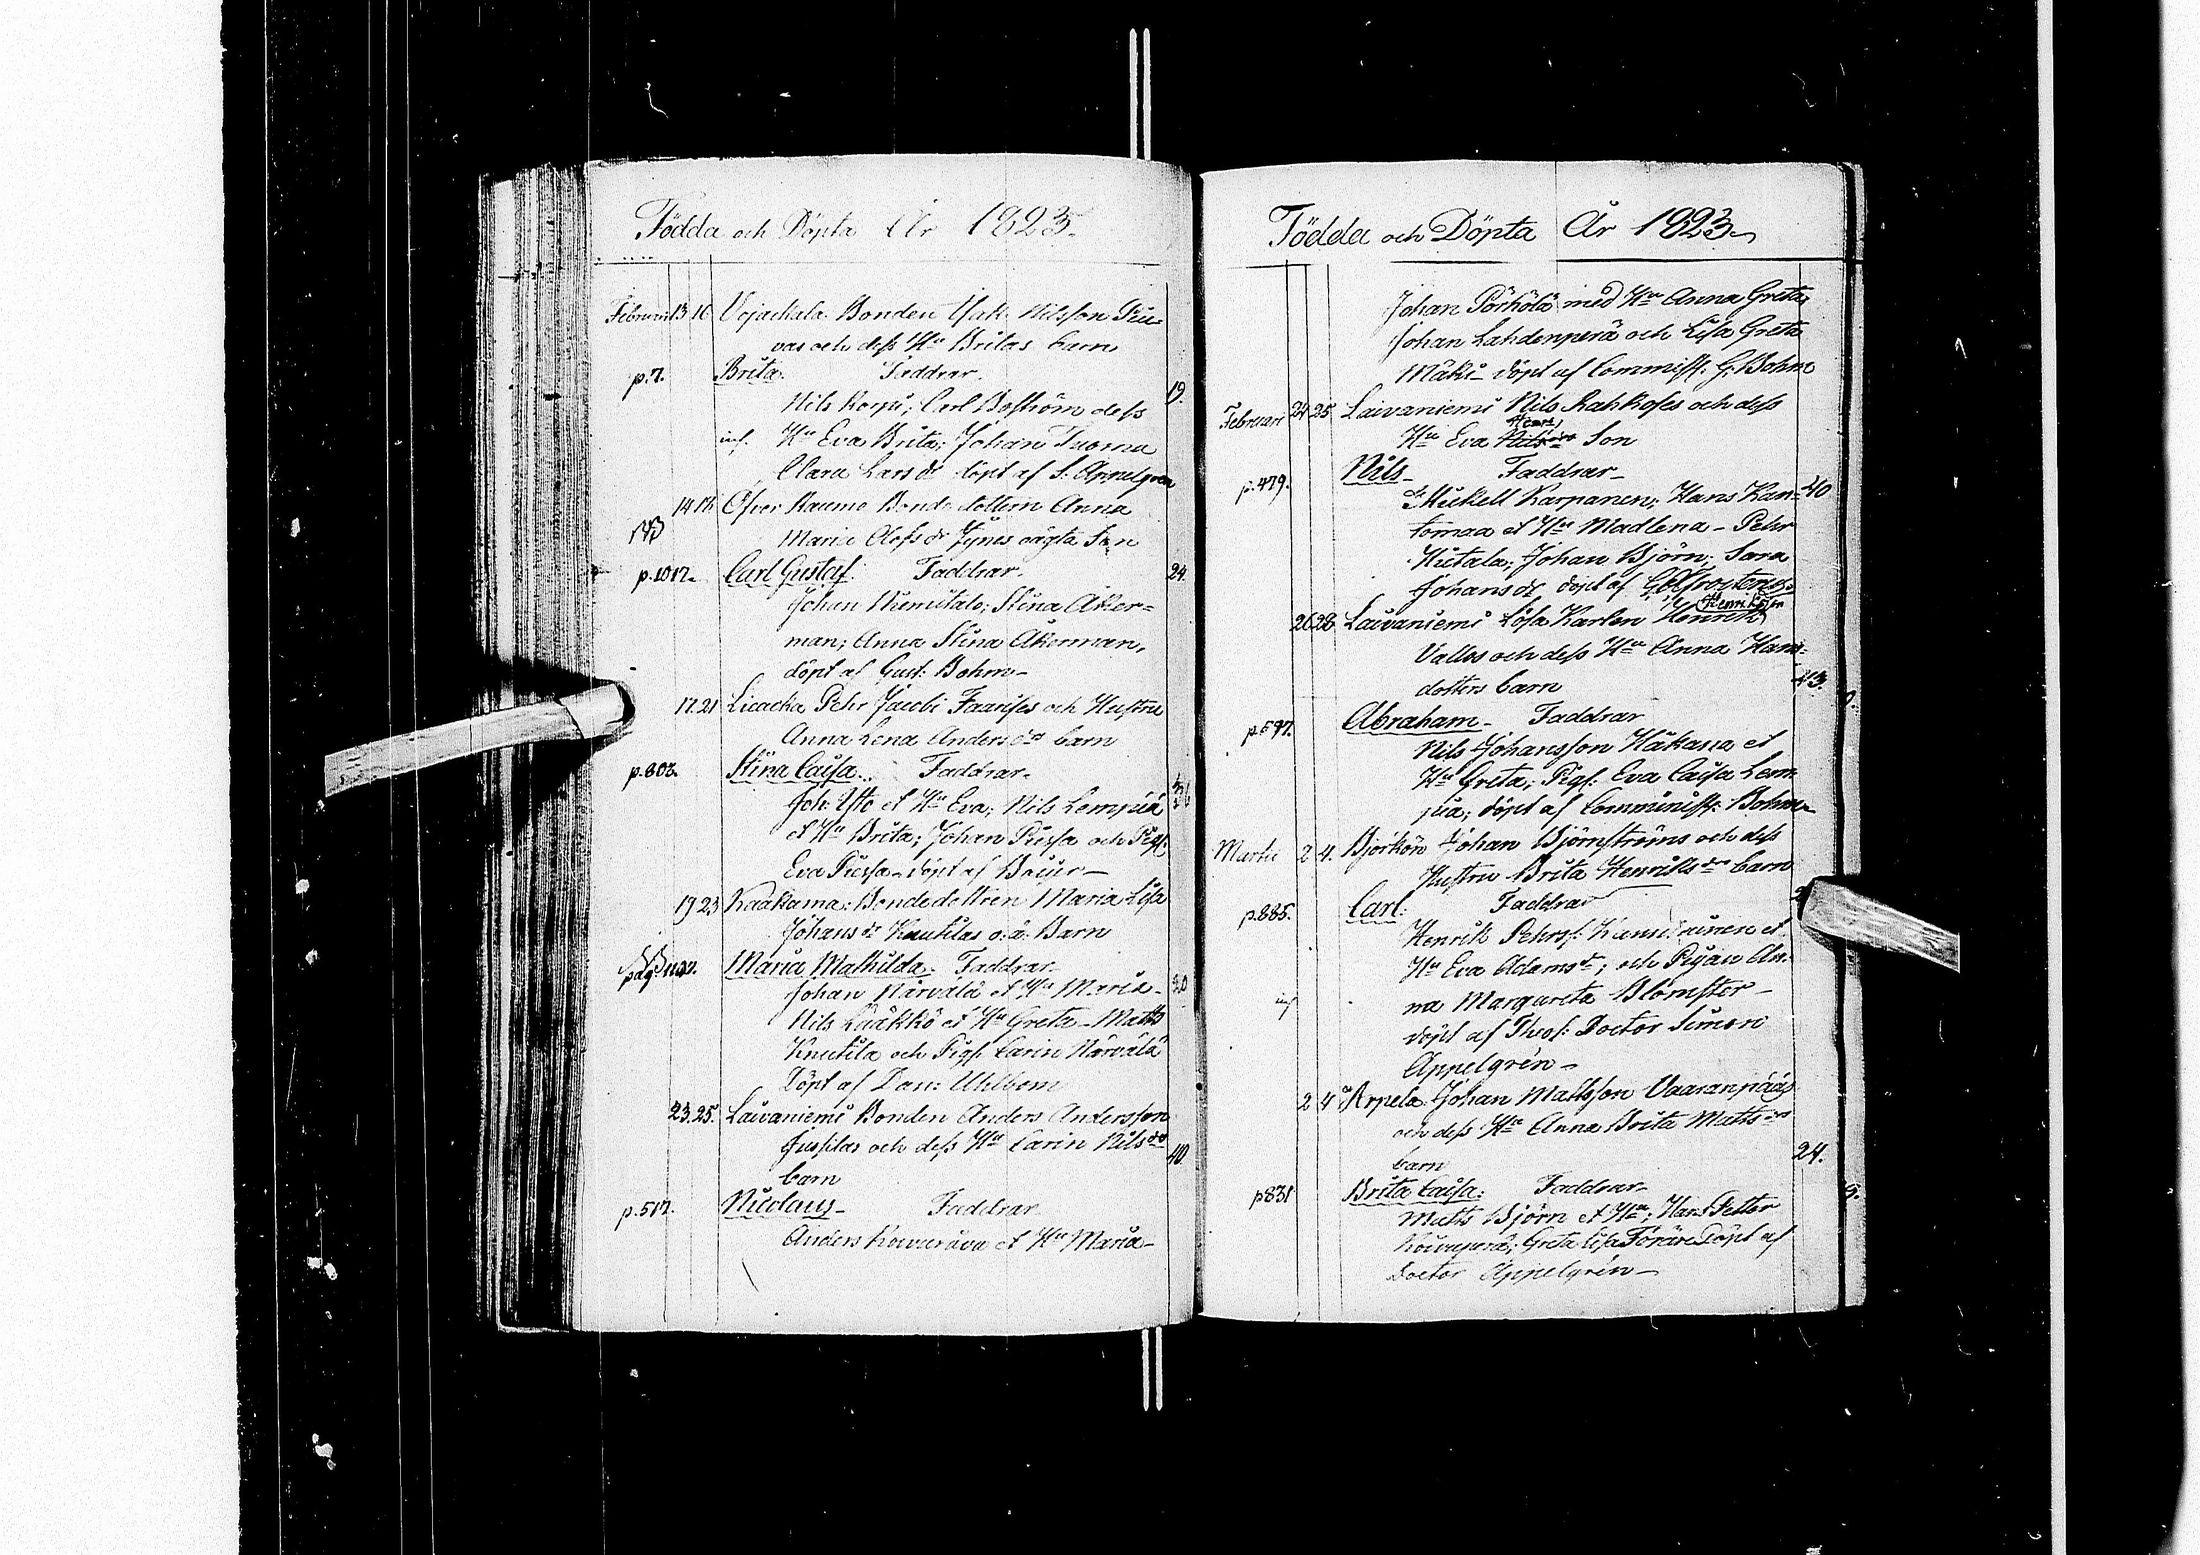 Födda och Döpta År 1823.
Februari 13 16 Vojackala Bonden Isak Nilsson Pii=
vas och dess Hu Britas barn
p.7. Brita. Faddrar.
19.
Nils Korpi; Carl Boström dess
inf. Hu Eva Brita; Johan Tuoma
Clara Larsdr döpt af S. Appelgren
14 16 Öfver Raumo Bondedottern Anna
NB Maria Olofsdr Jynis oägta Son
p.1017. Carl Gustaf. Faddrar. 24.
Johan Niemitalo; Stina Åker=
man; Anna Stina Åkerman,
döpt af Gust: Bohm
17. 21 Liedacka Pehr Jacobi and och Hustru
Anna Lena Andersdrs barn
p.802. Stina Caisa. Faddrar.
Joh: Ylto et Hu Eva; Nils Lempiä
et Hu Brita; Johan Piessa och Pig.
Eva Piessa döpt af
19 23 Kaakama: Bondedottren Maria Lisa
Johansdr Knutilas o: ä: Barn
NB pag: Maria Mathilda. Faddrar
20
Johan Närvälä et Hu Maria
Nils Lääkkö et Hu Greta Matts
Knutila och Pig. Carin Närvälä
Döpt af Dan: Uhlbom
23. 25. Laivaniemi Bonden Anders Andersson
Juspilas och dess Hu Carin Nilsdrs 40.
barn
p.517. Nicolaus Faddrar
Anders et Hu Maria
Födda och Döpta År 1823
Johan Pörhölä med Hu Anna Greta,
Johan Lahdenperä och Lisa Greta
Mäki döpt af Commiss. G. Bohm
Februari 24 25 Laivaniemi Nils Kahkoses och dess
Henr
Hu Eva Nilsdrs Son
p.479. Nils Faddrar
Mickell Karpanen; Hans Kan= 40
tomaa et Hu Madlena Pehr
Hietala; Johan Björn; Sara
Johansdr döpt af
Henriksson
26 28 Laivaniemi Lösa Karlen Henrik
Vallos och dess Hu Anna Hans=
dotters barn 43.
p.597. Abraham Faddrar
Nils Johansson Häkana et
Hu Greta; Pig. Eva Caisa Lem=
piä; döpt af Comminist. Bohm
Martii 2 4. Björkön Johan Björnströms och dess
Hustru Brita Henriksdrs barn
p.885. Carl. Faddrar
Henrik Pehrs. et
Hu Eva Adamsdr; och Pigan An=
inf na Margareta Blomster
döpt af Theol: Doctor Simon
Appelgrén
2 4 Arpela Johan Mattsson Vaaranpääs
och dess Hu Anna Brita Mattsdrs
barn 24.
p831 Brita Caisa. Faddrar
Matts Björn et Hu; Hans Petter
Koivuperä; Greta Lisa Döpt af
Doctor Appelgrén